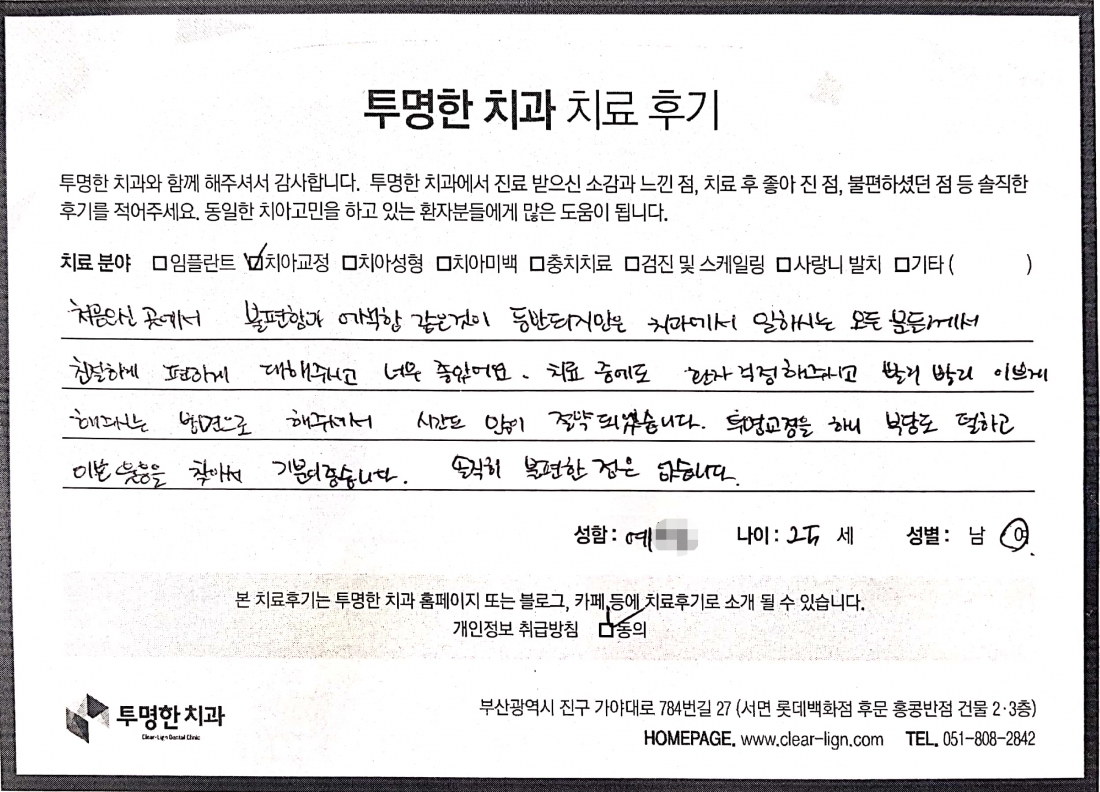 투명한 치과 치료 후기
투명한 치과와 함께 해주셔서 감사합니다. 투명한 치과에서 진료 받으신 소감과 느낀 점, 치료 후 좋아 진 점, 불편하셨던 점 등 솔직한
후기를 적어주세요. 동일한 치아고민을 하고 있는 환자분들에게 많은 도움이 됩니다.
치료 분야 □임플란트 ☑치아교정 □치아성형 □치아미백 □충치치료 □검진 및 스케일링 □사랑니 발치 □기타 ( )
곳에서 불편함과 어색함 같은것이 동반되지만은 치과에서 일하시는 모든 분들께서
친절하게 편하게 대해주시고 너무 좋았어요. 치료 중에도 환자 걱정해주시고 빨리 빨리 이쁘게
해주시는 방면으로 해주셔서 시간도 많이 절약 되었습니다. 투명교정을 하니 부담도 덜하고
이쁜 웃음을 찾아서 기분이좋습니다. 솔직히 불편한 점은 없습니다.
성함: 예 나이: 25 세 성별: 남 여
본 치료후기는 투명한 치과 홈페이지 또는 블로그, 카페 등에 치료후기로 소개 될 수 있습니다.
개인정보 취급방침 ☑동의
투명한 치과
Clear-Lign Dental Clinic
부산광역시 진구 가야대로 784번길 27 (서면 롯데백화점 후문 홍콩반점 건물 2·3층)
HOMEPAGE. www.clear-lign.com TEL. 051-808-2842